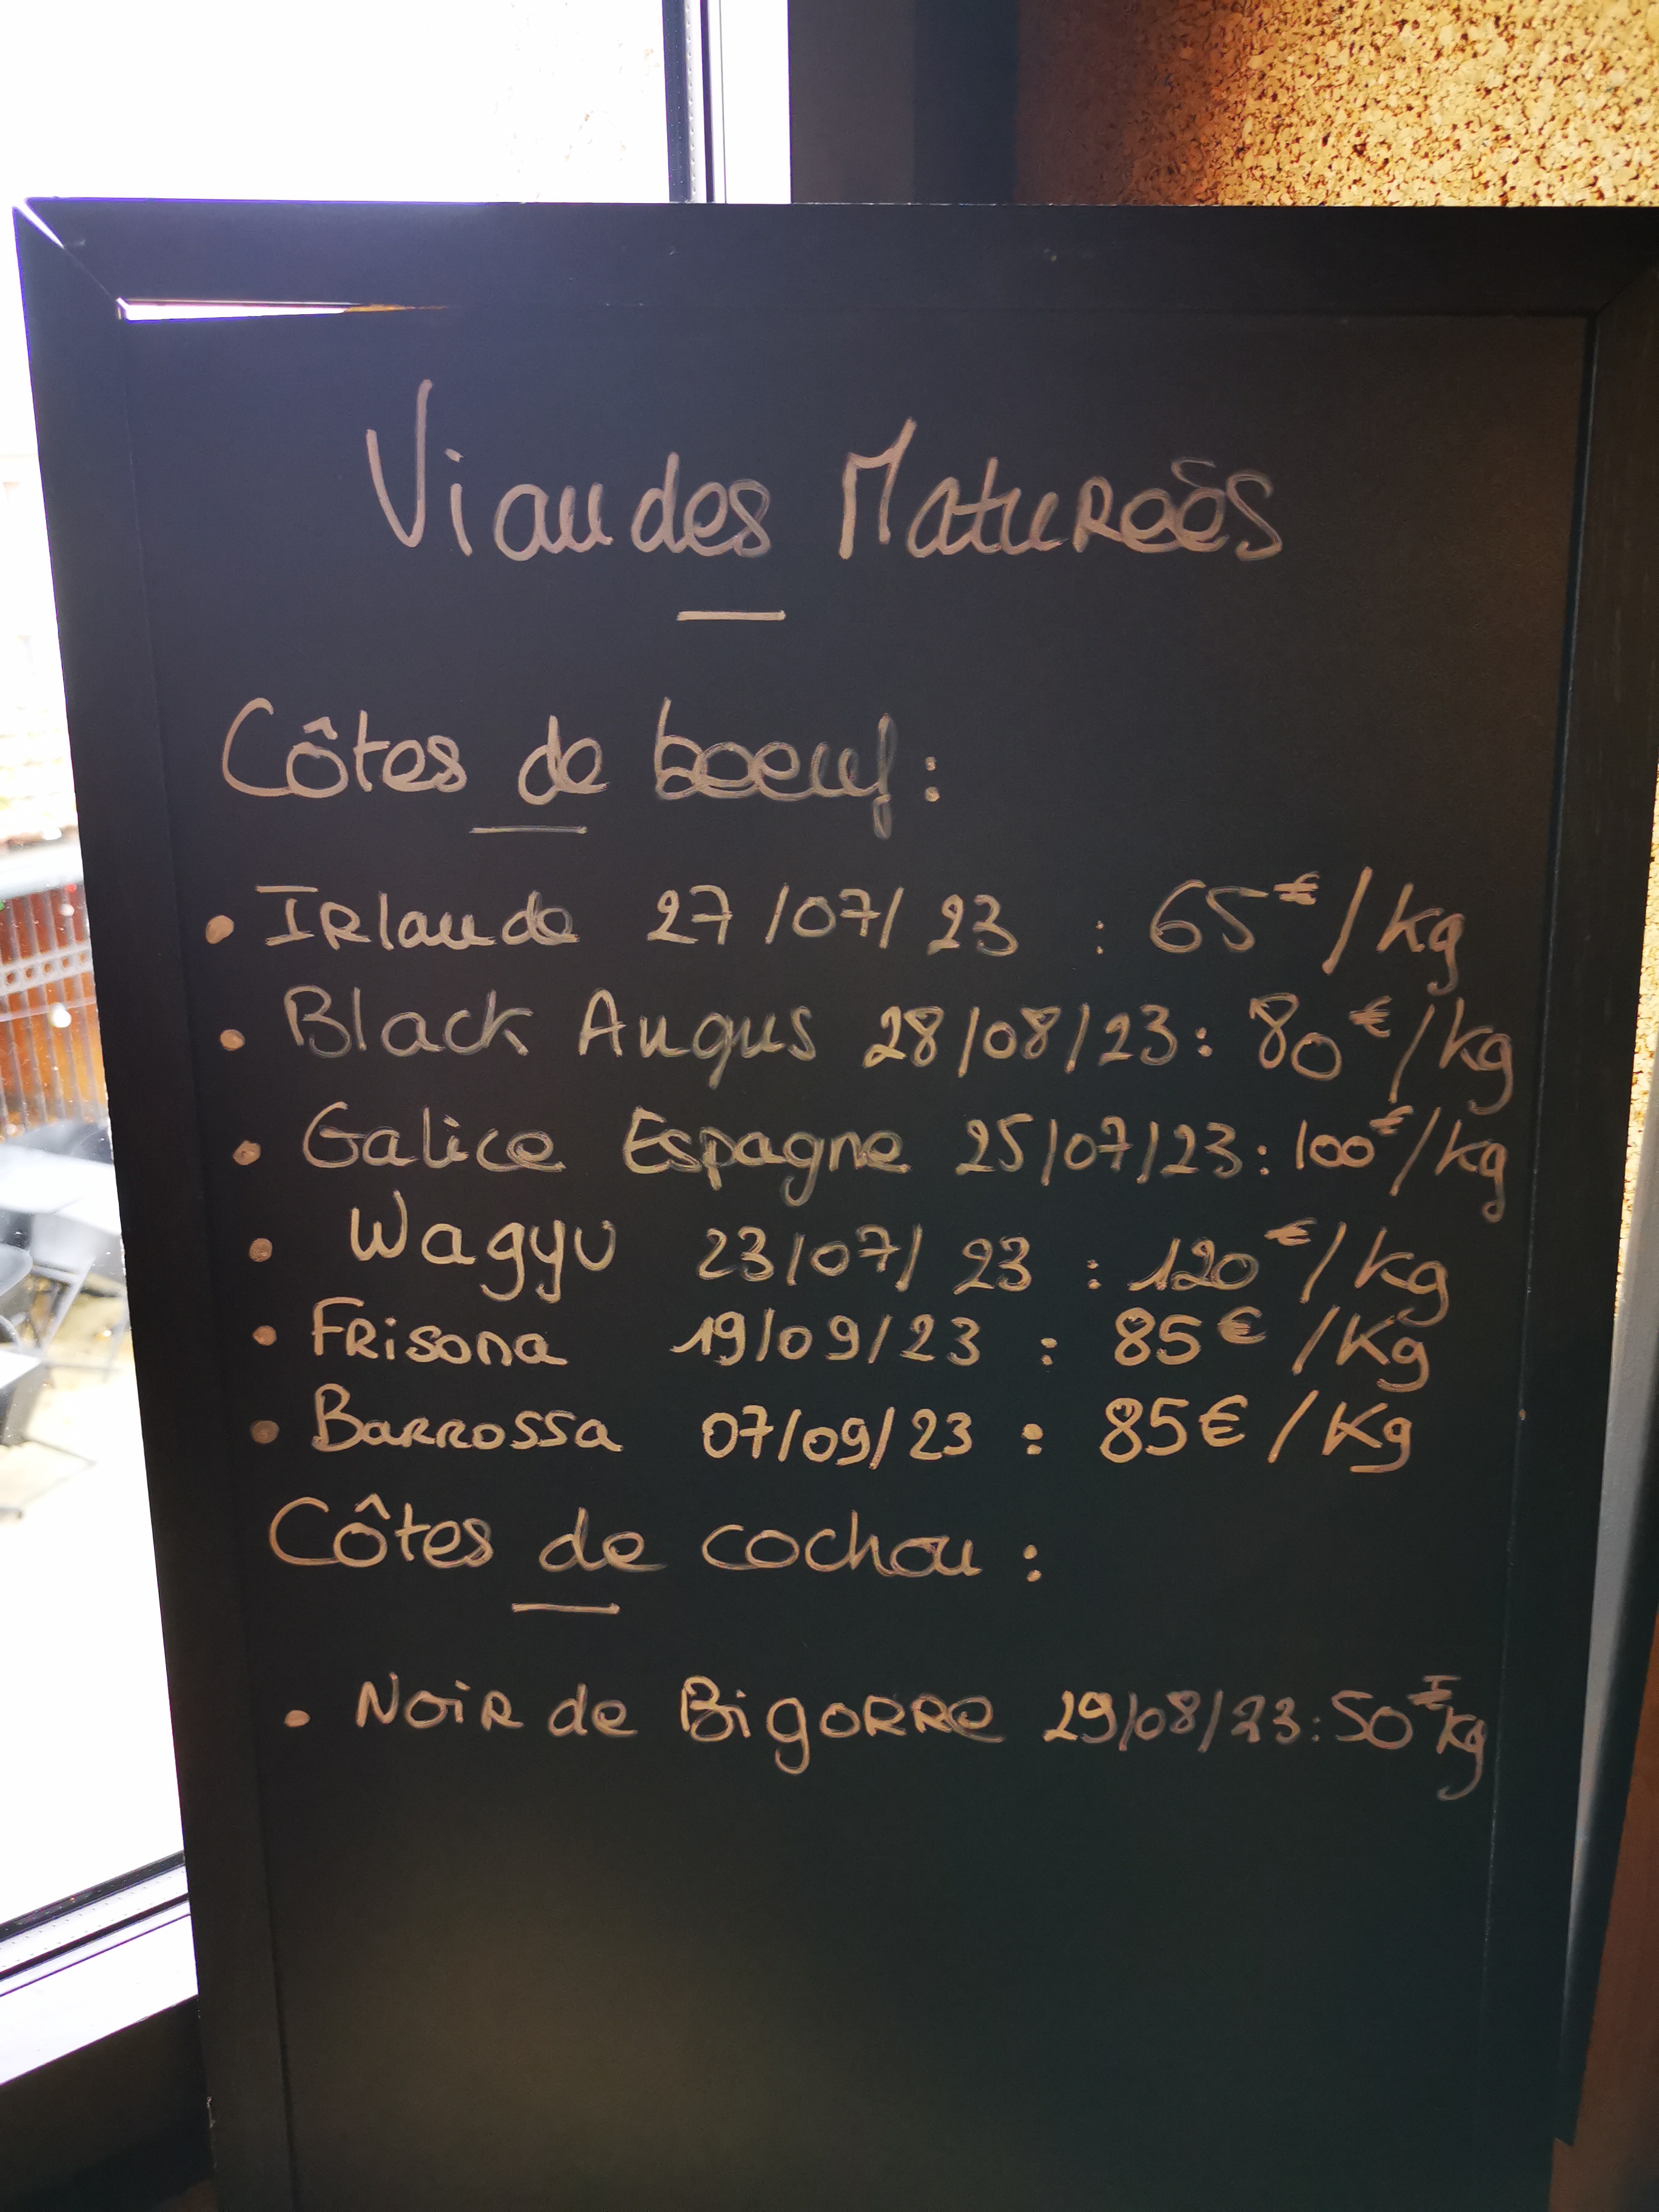 Viandes Maturées
Côtes de boeuf :
• Irlande 27/07/23 : 65€/kg
• Black Angus 28/08/23 : 80€/kg
• Galice Espagne 25/07/23 : 100€/kg
• Wagyu 23/07/23 : 120€/kg
• Frisona 19/09/23 : 85€/Kg
• Barrossa 07/09/23 : 85€/Kg
Côtes de cochon :
• Noir de Bigorre 29/08/23 : 50€/kg